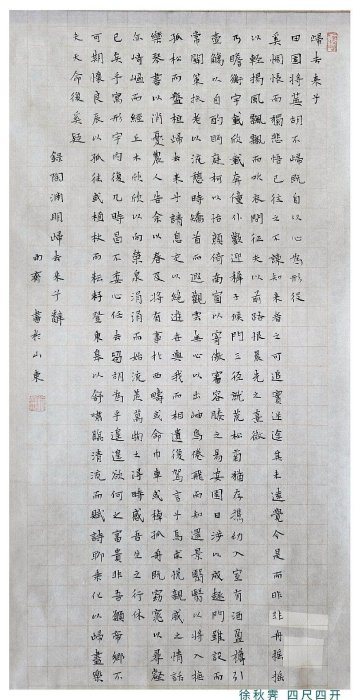 歸去来兮
田園將蕪胡不歸既自以心為形役
奚惆悵而獨悲悟已往之不諫知来者之可追實迷途其未遠覺今是而昨非舟摇摇
以輕颺風飄飄而吹衣問征夫以前路恨晨光之熹微
乃瞻衡宇載欣載奔僮仆歡迎稚子候門三徑就荒松菊猶存携幼入室有酒盈樽引
壺觴以自酌眄庭柯以怡顔倚南窗以寄傲審容膝之易安園日涉以成趣門雖設而
常關策扶老以流憩時矯首而遐觀雲無心以出岫鳥倦飛而知還景翳翳以將入撫
孤松而盤桓歸去来兮請息交以絶遊世與我而相遺復駕言兮焉求悦親戚之情話
樂琴書以消憂農人告余以春及將有事於西疇或命巾車或棹孤舟既窈窕以尋壑
亦崎嶇而經丘木欣欣以向榮泉涓涓而始流羨萬物之得時感吾生之行休
已矣乎寓形宇内復几時曷不委心任去留胡為乎遑遑欲何之富貴非吾願帝鄉不
可期懷良辰以孤往或植杖而耘耔登東皋以舒嘯臨清流而賦詩聊乘化以歸盡樂
夫天命復奚疑
録陶淵明歸去来兮辭
雨齋書於山東
徐秋霁 四尺四开